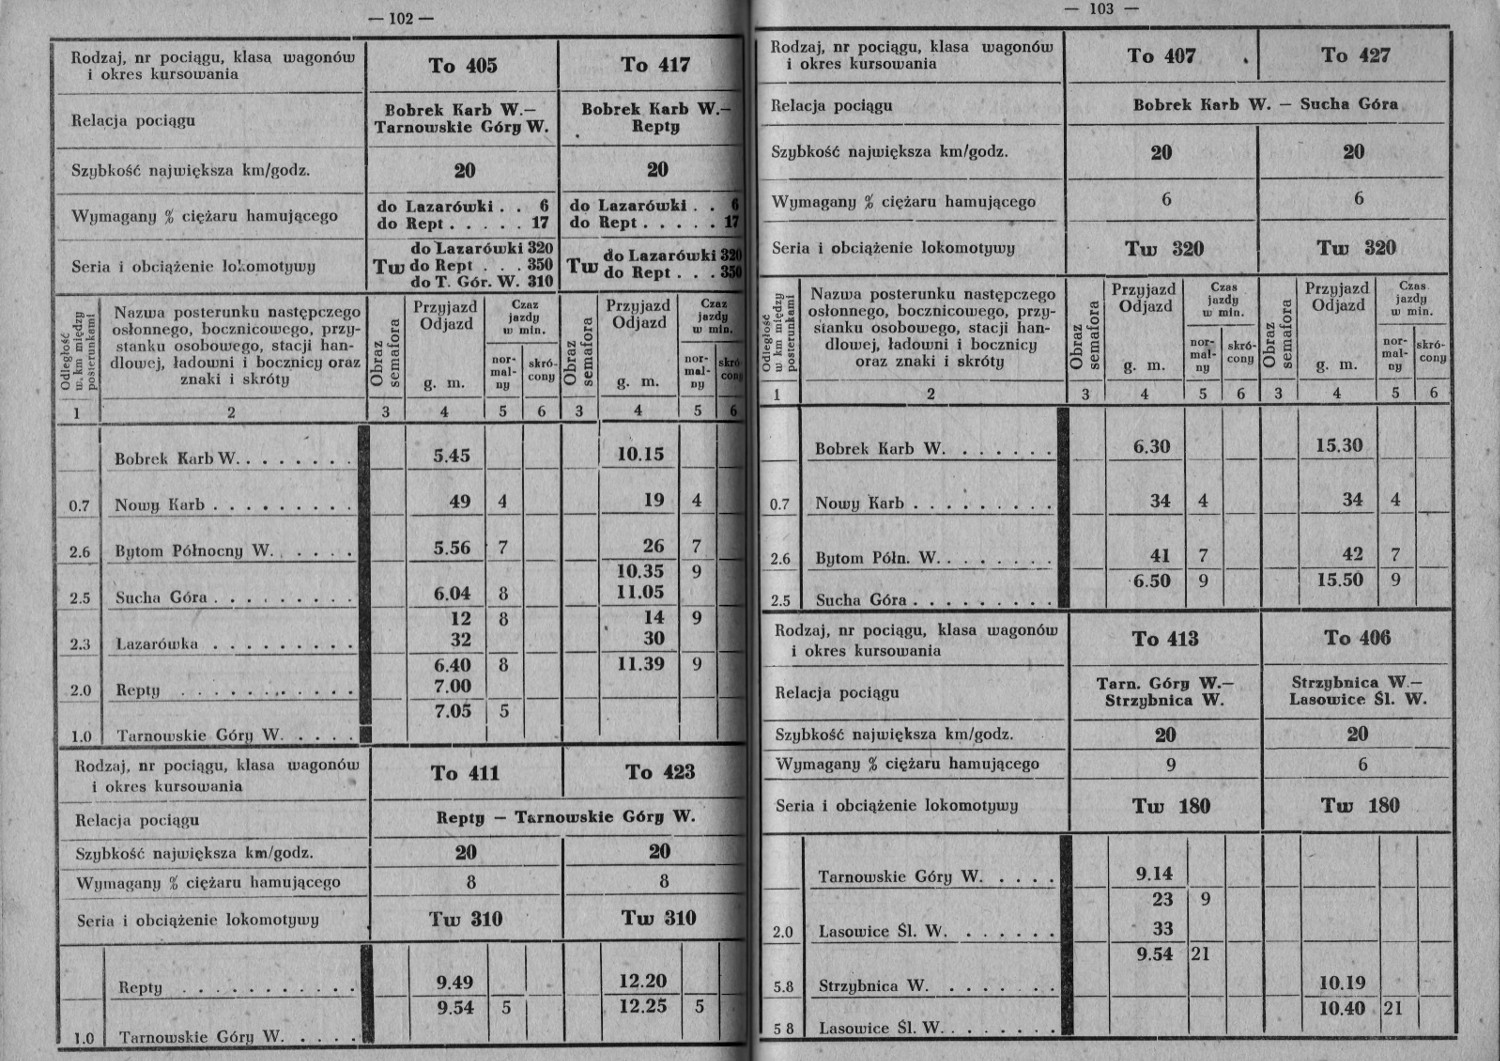 — 102 —
Rodzaj, nr pociągu, klasa wagonów
i okres kursowania
To 405
To 417
Relacja pociągu
Bobrek Karb W.—
Tarnowskie Góry W.
Bobrek Karb W.—
Repty
Szybkość największa km/godz.
20
20
Wymagany % ciężaru hamującego
do Lazarówki . . 6
do Rept . . . . . 17
do Lazarówki . . 6
do Rept . . . . . 17
Seria i obciążenie lokomotywy
Tw do Lazarówki 320
do Rept . . . 350
do T. Gór. W. 310
Tw do Lazarówki 320
do Rept . . . 350
Odległość
w km między
posterunkami
Nazwa posterunku następczego
osłonnego, bocznicowego, przy-
stanku osobowego, stacji han-
dlowej, ładowni i bocznicy oraz
znaki i skróty
Obraz
semafora
Przyjazd
Odjazd
g. m.
Czaz
jazdy
w min.
nor-
mal-
ny
skró-
cony
Obraz
semafora
Przyjazd
Odjazd
g. m.
Czaz
jazdy
w min.
nor-
mal-
ny
skró-
cony
1 2 3 4 5 6 3 4 5 6
Bobrek Karb W. . . . . . . . 5.45 10.15
0.7 Nowy Karb . . . . . . . . . 49 4 19 4
2.6 Bytom Północny W. . . . . . 5.56 7 26 7
10.35 9
2.5 Sucha Góra . . . . . . . . . 6.04 8 11.05
12 8 14 9
2.3 Lazarówka . . . . . . . . . 32 30
6.40 8 11.39 9
2.0 Repty . . . . . . . . . . . 7.00
7.05 5
1.0 Tarnowskie Góry W. . . . .
Rodzaj, nr pociągu, klasa wagonów
i okres kursowania
To 411
To 423
Relacja pociągu
Repty — Tarnowskie Góry W.
Szybkość największa km/godz.
20
20
Wymagany % ciężaru hamującego
8
8
Seria i obciążenie lokomotywy
Tw 310
Tw 310
Repty . . . . . . . . . . . 9.49 12.20
9.54 5 12.25 5
1.0 Tarnowskie Góry W. . . . .
— 103 —
Rodzaj, nr pociągu, klasa wagonów
i okres kursowania
To 407
To 427
Relacja pociągu
Bobrek Karb W. — Sucha Góra
Szybkość największa km/godz.
20
20
Wymagany % ciężaru hamującego
6
6
Seria i obciążenie lokomotywy
Tw 320
Tw 320
Odległość
w km między
posterunkami
Nazwa posterunku następczego
osłonnego, bocznicowego, przy-
stanku osobowego, stacji han-
dlowej, ładowni i bocznicy
oraz znaki i skróty
Obraz
semafora
Przyjazd
Odjazd
g. m.
Czas
jazdy
w min.
nor-
mal-
ny
skró-
cony
Obraz
semafora
Przyjazd
Odjazd
g. m.
Czas
jazdy
w min.
nor-
mal-
ny
skró-
cony
1 2 3 4 5 6 3 4 5 6
Bobrek Karb W. . . . . . . 6.30 15.30
0.7 Nowy Karb . . . . . . . . . 34 4 34 4
2.6 Bytom Półn. W. . . . . . . . 41 7 42 7
6.50 9 15.50 9
2.5 Sucha Góra . . . . . . . . .
Rodzaj, nr pociągu, klasa wagonów
i okres kursowania
To 413
To 406
Relacja pociągu
Tarn. Góry W.—
Strzybnica W.
Strzybnica W.—
Lasowice Śl. W.
Szybkość największa km/godz.
20
20
Wymagany % ciężaru hamującego
9
6
Seria i obciążenie lokomotywy
Tw 180
Tw 180
Tarnowskie Góry W. . . . . 9.14
23 9
2.0 Lasowice Śl. W. . . . . . . 33
9.54 21
5.8 Strzybnica W. . . . . . . . 10.19
10.40 21
5 8 Lasowice Śl. W. . . . . . . .